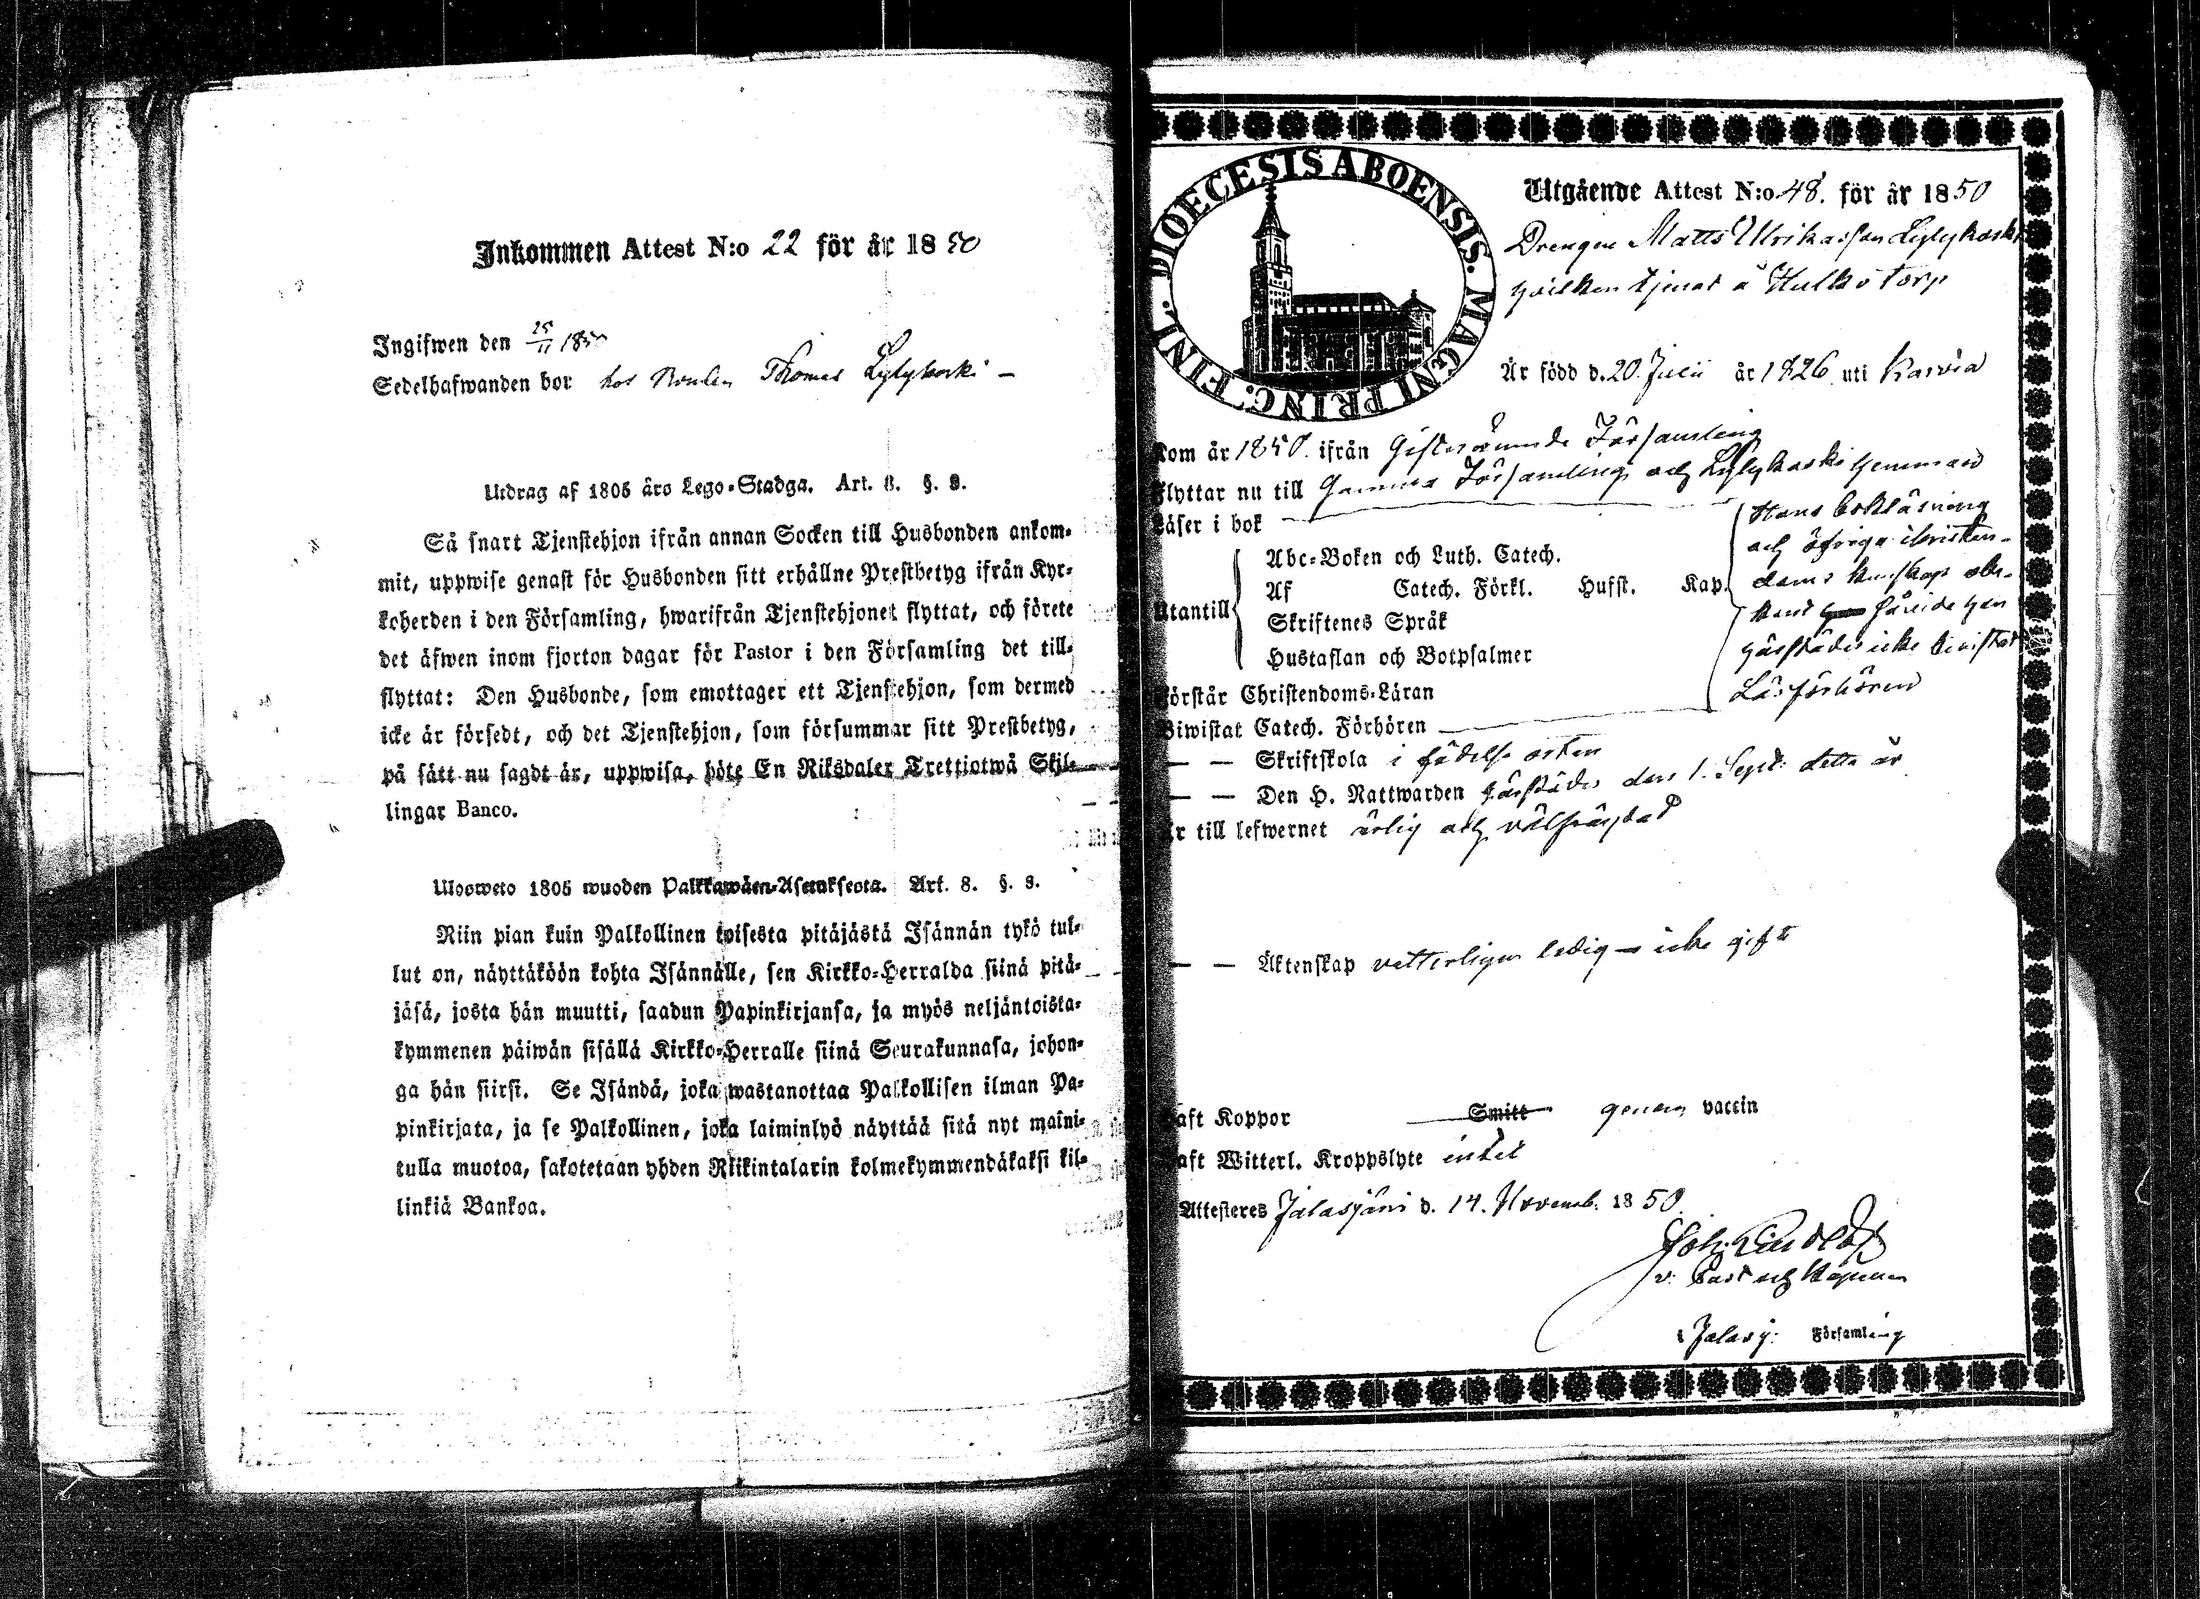 Inkommen Attest N:o 22 för år 1850
Ingifwen den 25/11 1850
Sedelhafwanden bor hos Bonden Thomas Lylykoski –
Utdrag af 1805 års Lego-Stadga. Art. 8. §. 9.
Så snart Tjenstehjon ifrån annan Socken till Husbonden ankom-
mit, uppwise genast för Husbonden sitt erhållne Prestbetyg ifrån Kyr-
koherden i den Församling, hwarifrån Tjenstehjonet flyttat, och förete
det äfwen inom fjorton dagar för Pastor i den Församling det till-
flyttat: Den Husbonde, som emottager ett Tjenstehjon, som dermed
icke är försedt, och det Tjenstehjon, som försummar sitt Prestbetyg,
på sätt nu sagdt är, uppwisa, böte En Riksdaler Trettiotwå Skil-
lingar Banco.
Ulosweto 1805 wuoden Palkkawäen-Asetuksesta. Art. 8. §. 9.
Niin pian kuin Palkollinen toisesta pitäjästä Isännän tykö tul-
lut on, näyttäköön kohta Isännälle, sen Kirkko-Herralda siinä pitä-
jäsä, josta hän muutti, saadun Papinkirjansa, ja myös neljäntoista-
kymmenen päiwän sisällä Kirkko-Herralle siinä Seurakunnasa, johon-
ga hän siirsi. Se Isändä, joka wastanottaa Palkollisen ilman Pa-
pinkirjata, ja se Palkollinen, joka laiminlyö näyttää sitä nyt maini-
tulla muotoa, sakotetaan yhden Riikintalarin kolmekymmendäkaksi kil-
linkiä Bankoa.
DIOECESIS ABOENSIS. MAGNI PRINC. FINL.
Utgående Attest N:o 48. för år 1850
Drengen Matts Ulrikasson Lylykoski
hvilken tjenat å Hulko torp
Är född d. 20 Julii år 1826 uti Karvia
Kom år 1850. ifrån Församling
Flyttar nu till Församling och Lylykoski hemman
Läser i bok
Utantill
Abc-Boken och Luth. Catech.
Af Catech. Förkl. Husst. Kap.
Skriftenes Språk
Hustaflan och Botpsalmer
Hans bokläsning
och öfriga christen-
doms kunskap obe-
kant han
härstädes icke bivistat
Läsförhören
Förstår Christendoms-Läran
Biwistat Catech. Förhören
— — Skriftskola i födelse orten
— — Den H. Nattwarden härstädes den 1. Sept. detta år
Är till lefwernet ärlig och välfrägdad
— — Äktenskap vetterligen ledig – icke gift
Haft Koppor Smitt genom vaccin
Haft Witterl. Kroppslyte intet
Attesteres Jalasjärvi d. 14. Novemb. 1850.
Joh.
v. Past och
i Jalasj: Församling